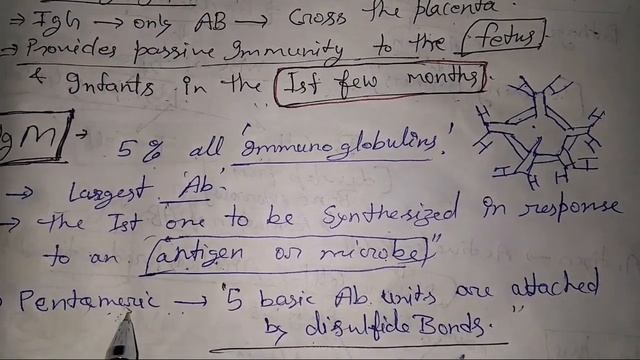 → IgG → only AB → Cross the placenta.
→ Provides passive immunity to the fetus
& Infants in the Ist few months.
gM → 5% all 'Immunoglobulins'.
→ Largest 'Ab'.
→ the Ist one to be synthesized in response
to an "antigen or microbe"
Pentameric → "5 basic Ab. units are attached
by disulfide Bonds."
H H H